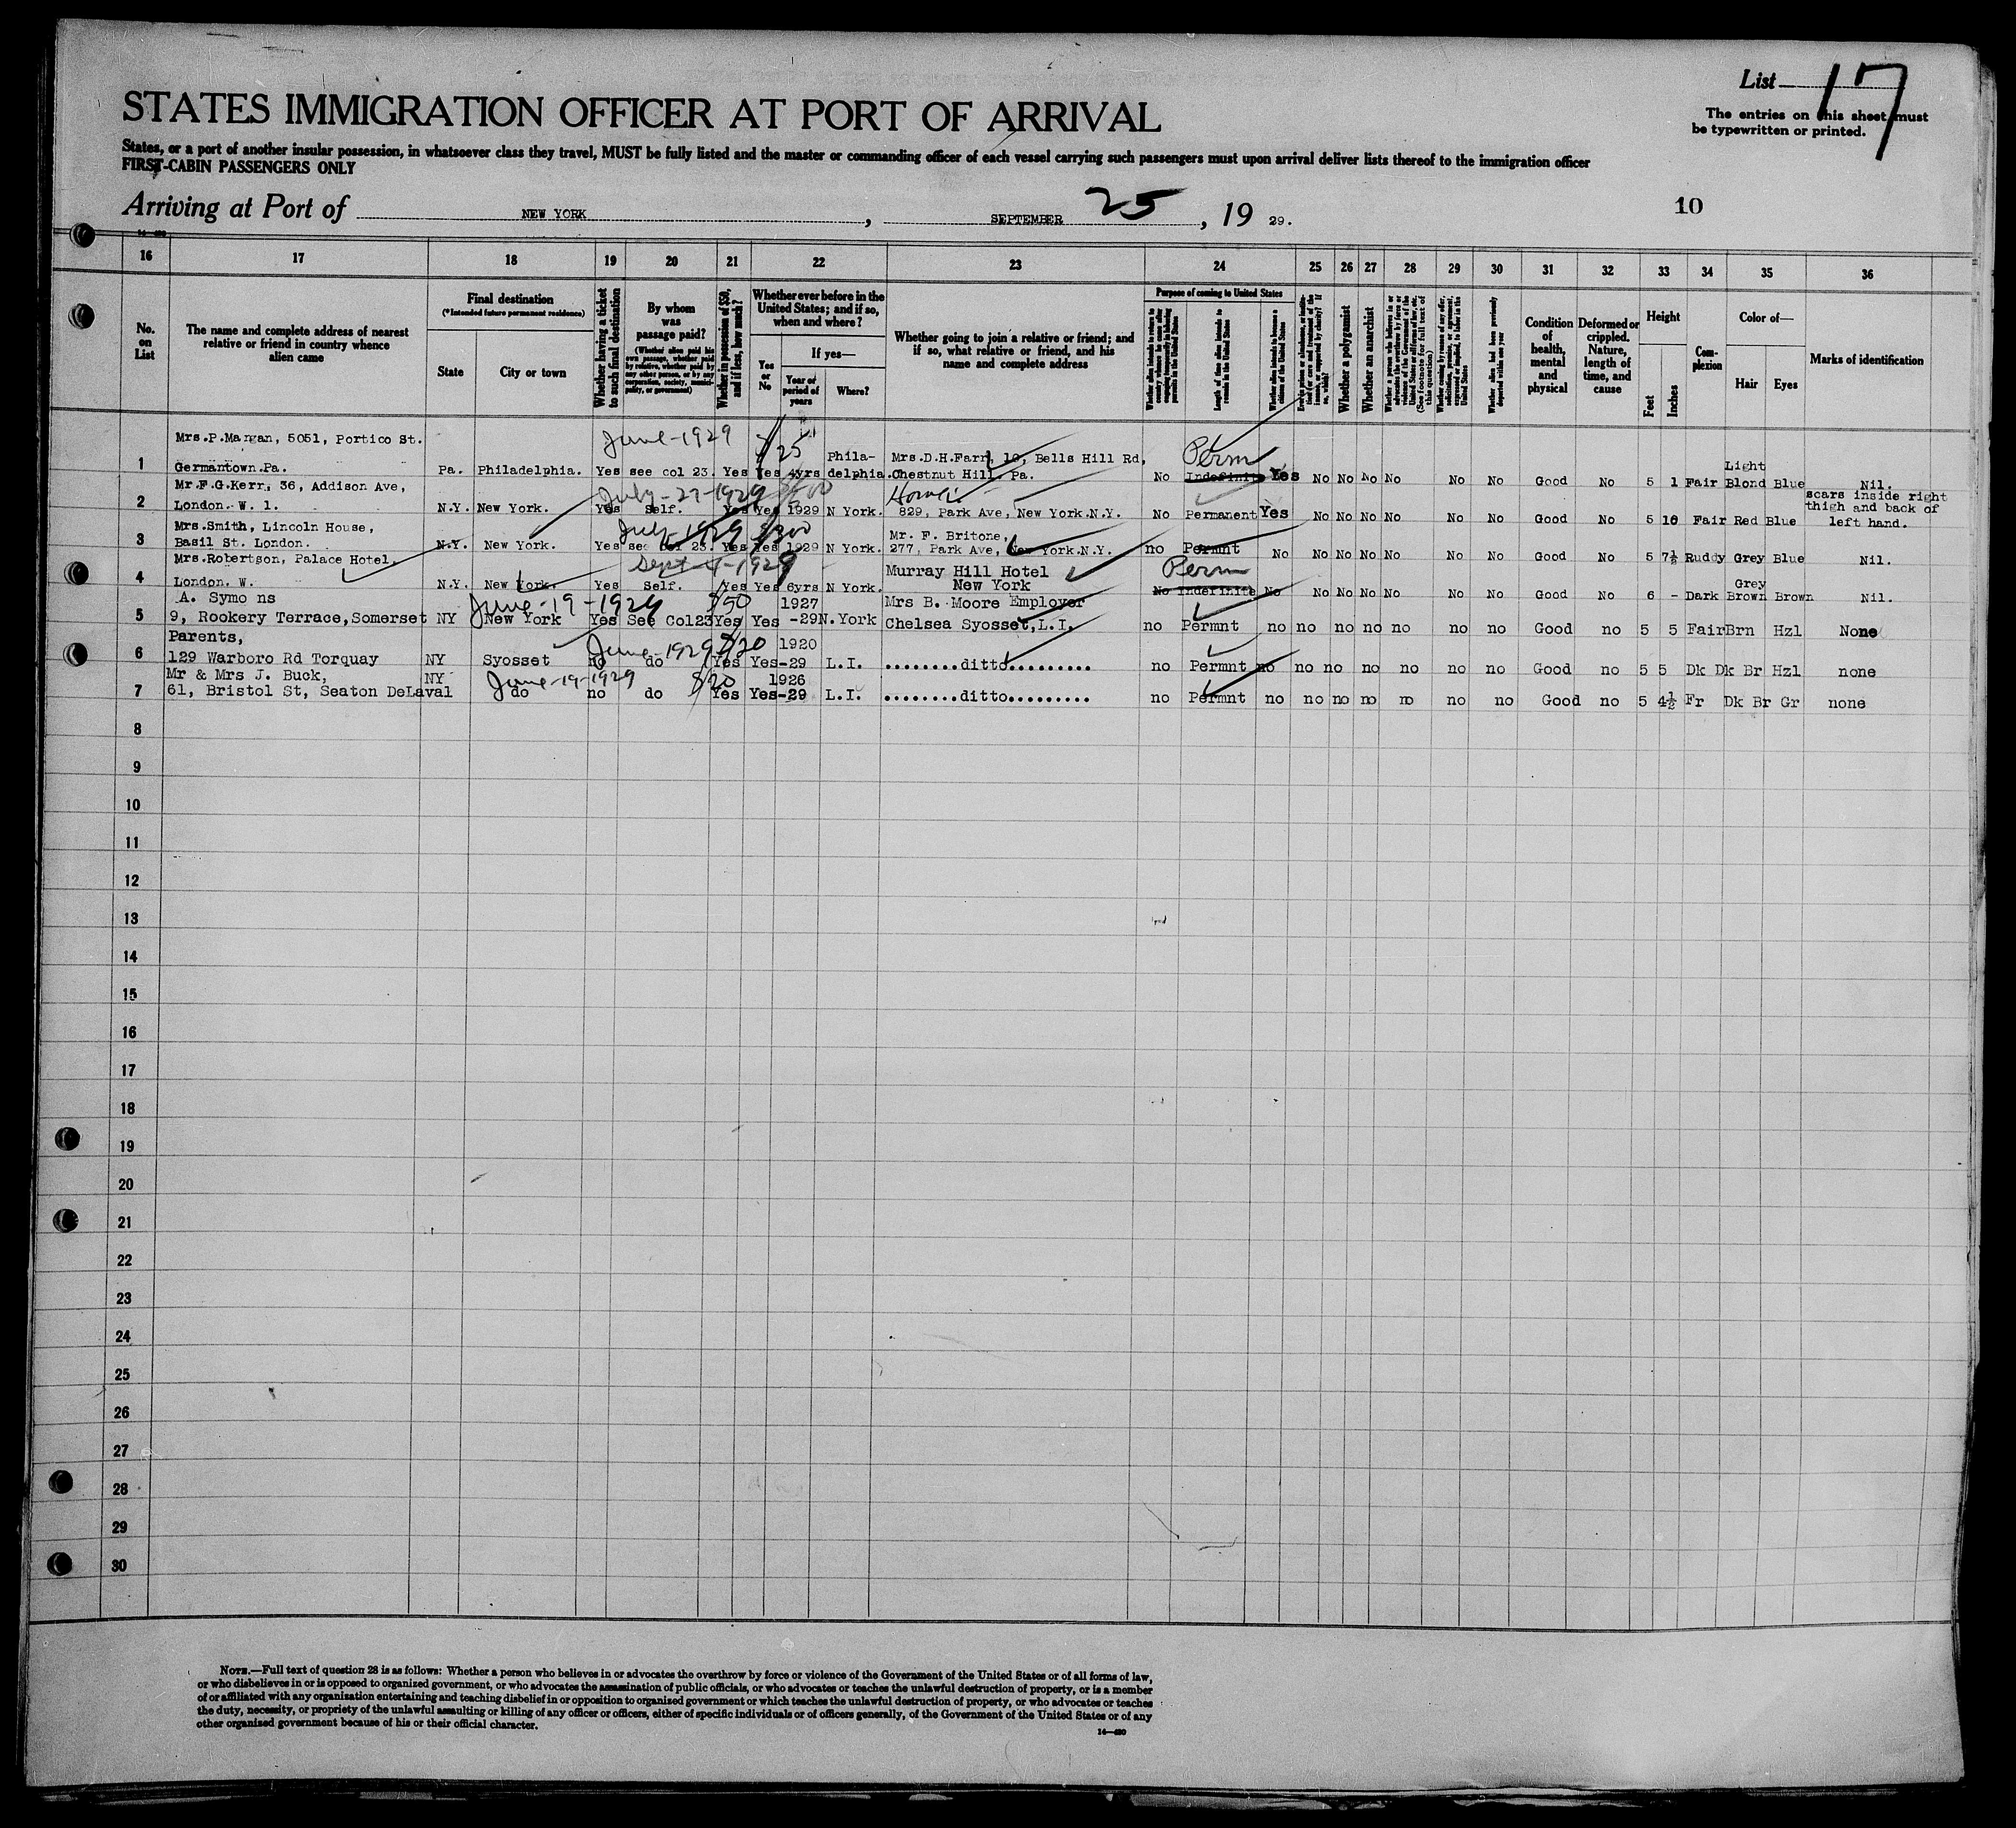 List 17
STATES IMMIGRATION OFFICER AT PORT OF ARRIVAL
The entries on this sheet must
be typewritten or printed.
States, or a port of another insular possession, in whatsoever class they travel, MUST be fully listed and the master or commanding officer of each vessel carrying such passengers must upon arrival deliver lists thereof to the immigration officer
FIRST-CABIN PASSENGERS ONLY
Arriving at Port of NEW YORK, SEPTEMBER 25, 19 29.
10
16 17 18 19 20 21 22 23 24 25 26 27 28 29 30 31 32 33 34 35 36
No. on List
The name and complete address of nearest relative or friend in country whence alien came
Final destination
(*Intended future permanent residence)
State
City or town
Whether having a ticket to such final destination
By whom was passage paid?
(Whether alien paid his own passage, whether paid by relative, whether paid by any other person, or by any corporation, society, municipality, or government)
Whether in possession of $50, and if less, how much?
Whether ever before in the United States; and if so, when and where?
Yes or No
If yes—
Year or period of years
Where?
Whether going to join a relative or friend; and if so, what relative or friend, and his name and complete address
Purpose of coming to United States
Length of time alien intends to remain in the United States
Whether alien intends to become a citizen of the United States
Whether a polygamist
Whether an anarchist
(See footnote for full text of this question)
Whether alien had been previously deported within one year
Condition of health, mental and physical
Deformed or crippled. Nature, length of time, and cause
Height
Feet
Inches
Complexion
Color of—
Hair
Eyes
Marks of identification
June-1929 $25 Perm
Mrs.P.Mangan, 5051, Portico St. Phila- Mrs.D.H.Farr, 10, Bells Hill Rd, Light
1 Germantown.Pa. Pa. Philadelphia. Yes see col 23. Yes Yes 4yrs delphia. Chestnut Hill. Pa. No Indefinite Yes No No No No No No Good No 5 1 Fair Blond Blue Nil.
July-27-1929 Home
Mr.F.G.Kerr, 36, Addison Ave, scars inside right
2 London. W. 1. N.Y. New York. Yes Self. Yes Yes 1929 N York. 829, Park Ave, New York.N.Y. No Permanent Yes No No No No No No Good No 5 10 Fair Red Blue thigh and back of
left hand.
July 1929 $300
Mrs.Smith, Lincoln House, Mr. F. Britone,
3 Basil St. London. N.Y. New York. Yes see col 23. Yes Yes 1929 N York. 277, Park Ave, New York.N.Y. no Permnt No No No No No No No Good No 5 7½ Ruddy Grey Blue Nil.
Sept-4-1929 Perm
Mrs.Robertson, Palace Hotel, Murray Hill Hotel Grey
4 London. W. N.Y. New York. Yes Self. Yes Yes 6yrs N York. New York No Indefinite No No No No No No No Good No 6 - Dark Brown Brown Nil.
June-19-1929 $50
A. Symo ns 1927 Mrs B. Moore Employer
5 9, Rookery Terrace,Somerset NY New York Yes See Col23 Yes Yes -29 N.York Chelsea Syosset,L.I. no Permnt no no no no no no no Good no 5 5 Fair Brn Hzl None
June-1929 $20
Parents, 1920
6 129 Warboro Rd Torquay NY Syosset no do Yes Yes-29 L.I. ........ditto.......... no Permnt no no no no no no no Good no 5 5 Dk Dk Br Hzl none
June-19-1929 $20
Mr & Mrs J. Buck, NY 1926
7 61, Bristol St, Seaton DeLaval do no do Yes Yes-29 L.I. ........ditto.......... no Permnt no no no no no no no Good no 5 4½ Fr Dk Br Gr none
8
9
10
11
12
13
14
15
16
17
18
19
20
21
22
23
24
25
26
27
28
29
30
NOTE.—Full text of question 28 is as follows: Whether a person who believes in or advocates the overthrow by force or violence of the Government of the United States or of all forms of law,
or who disbelieves in or is opposed to organized government, or who advocates the assassination of public officials, or who advocates or teaches the unlawful destruction of property, or is a member
of or affiliated with any organization entertaining and teaching disbelief in or opposition to organized government or which teaches the unlawful destruction of property, or who advocates or teaches
the duty, necessity, or propriety of the unlawful assaulting or killing of any officer or officers, either of specific individuals or of officers generally, of the Government of the United States or of any
other organized government because of his or their official character.
14—480